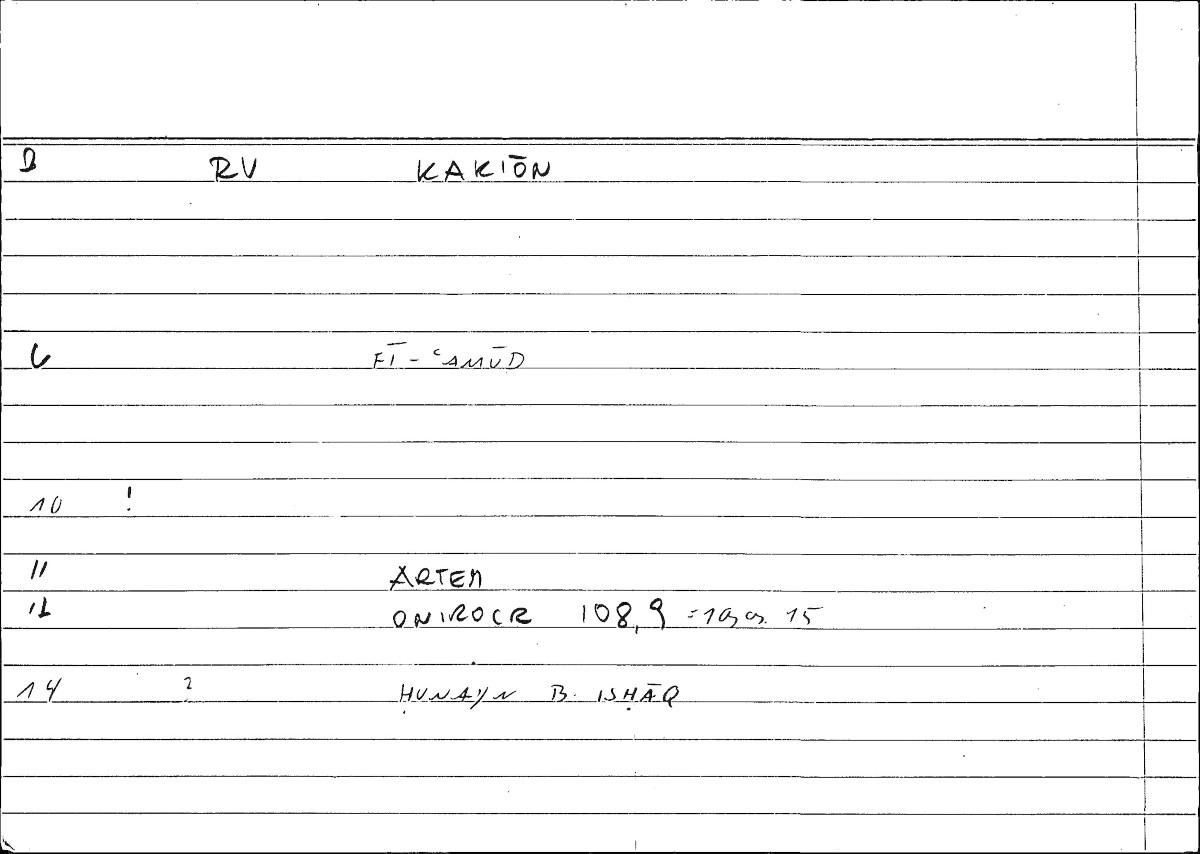 B RV KAKIŌN
6 FĪ-ʿAMŪD
10 !
11 ARTEM
12 ONIROCR 108,9 =
14 ? ḤUNAYN B. ISḤĀQ